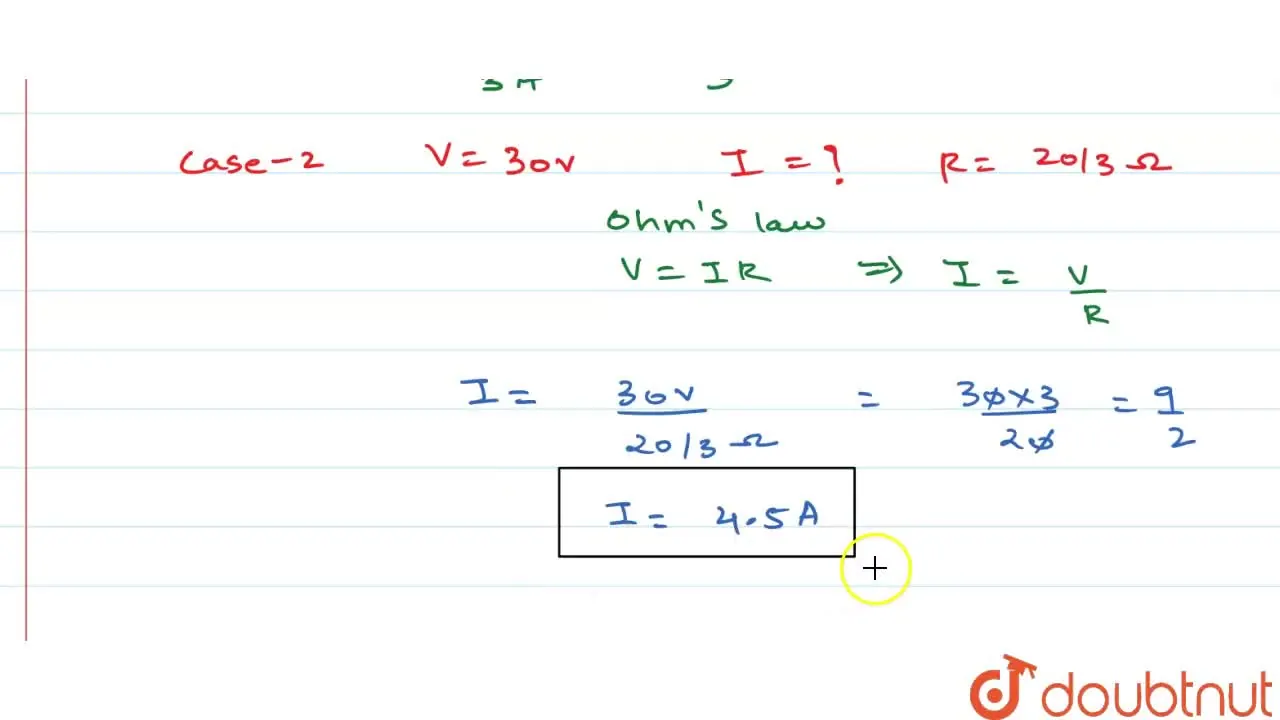 Case-2 V= 30v I = ? R= 20/3 Ω
Ohm's law
V = IR ⇒ I = V/R
I = 30v/20/3 Ω = 30×3/20 = 9/2
I = 4.5A
doubtnut